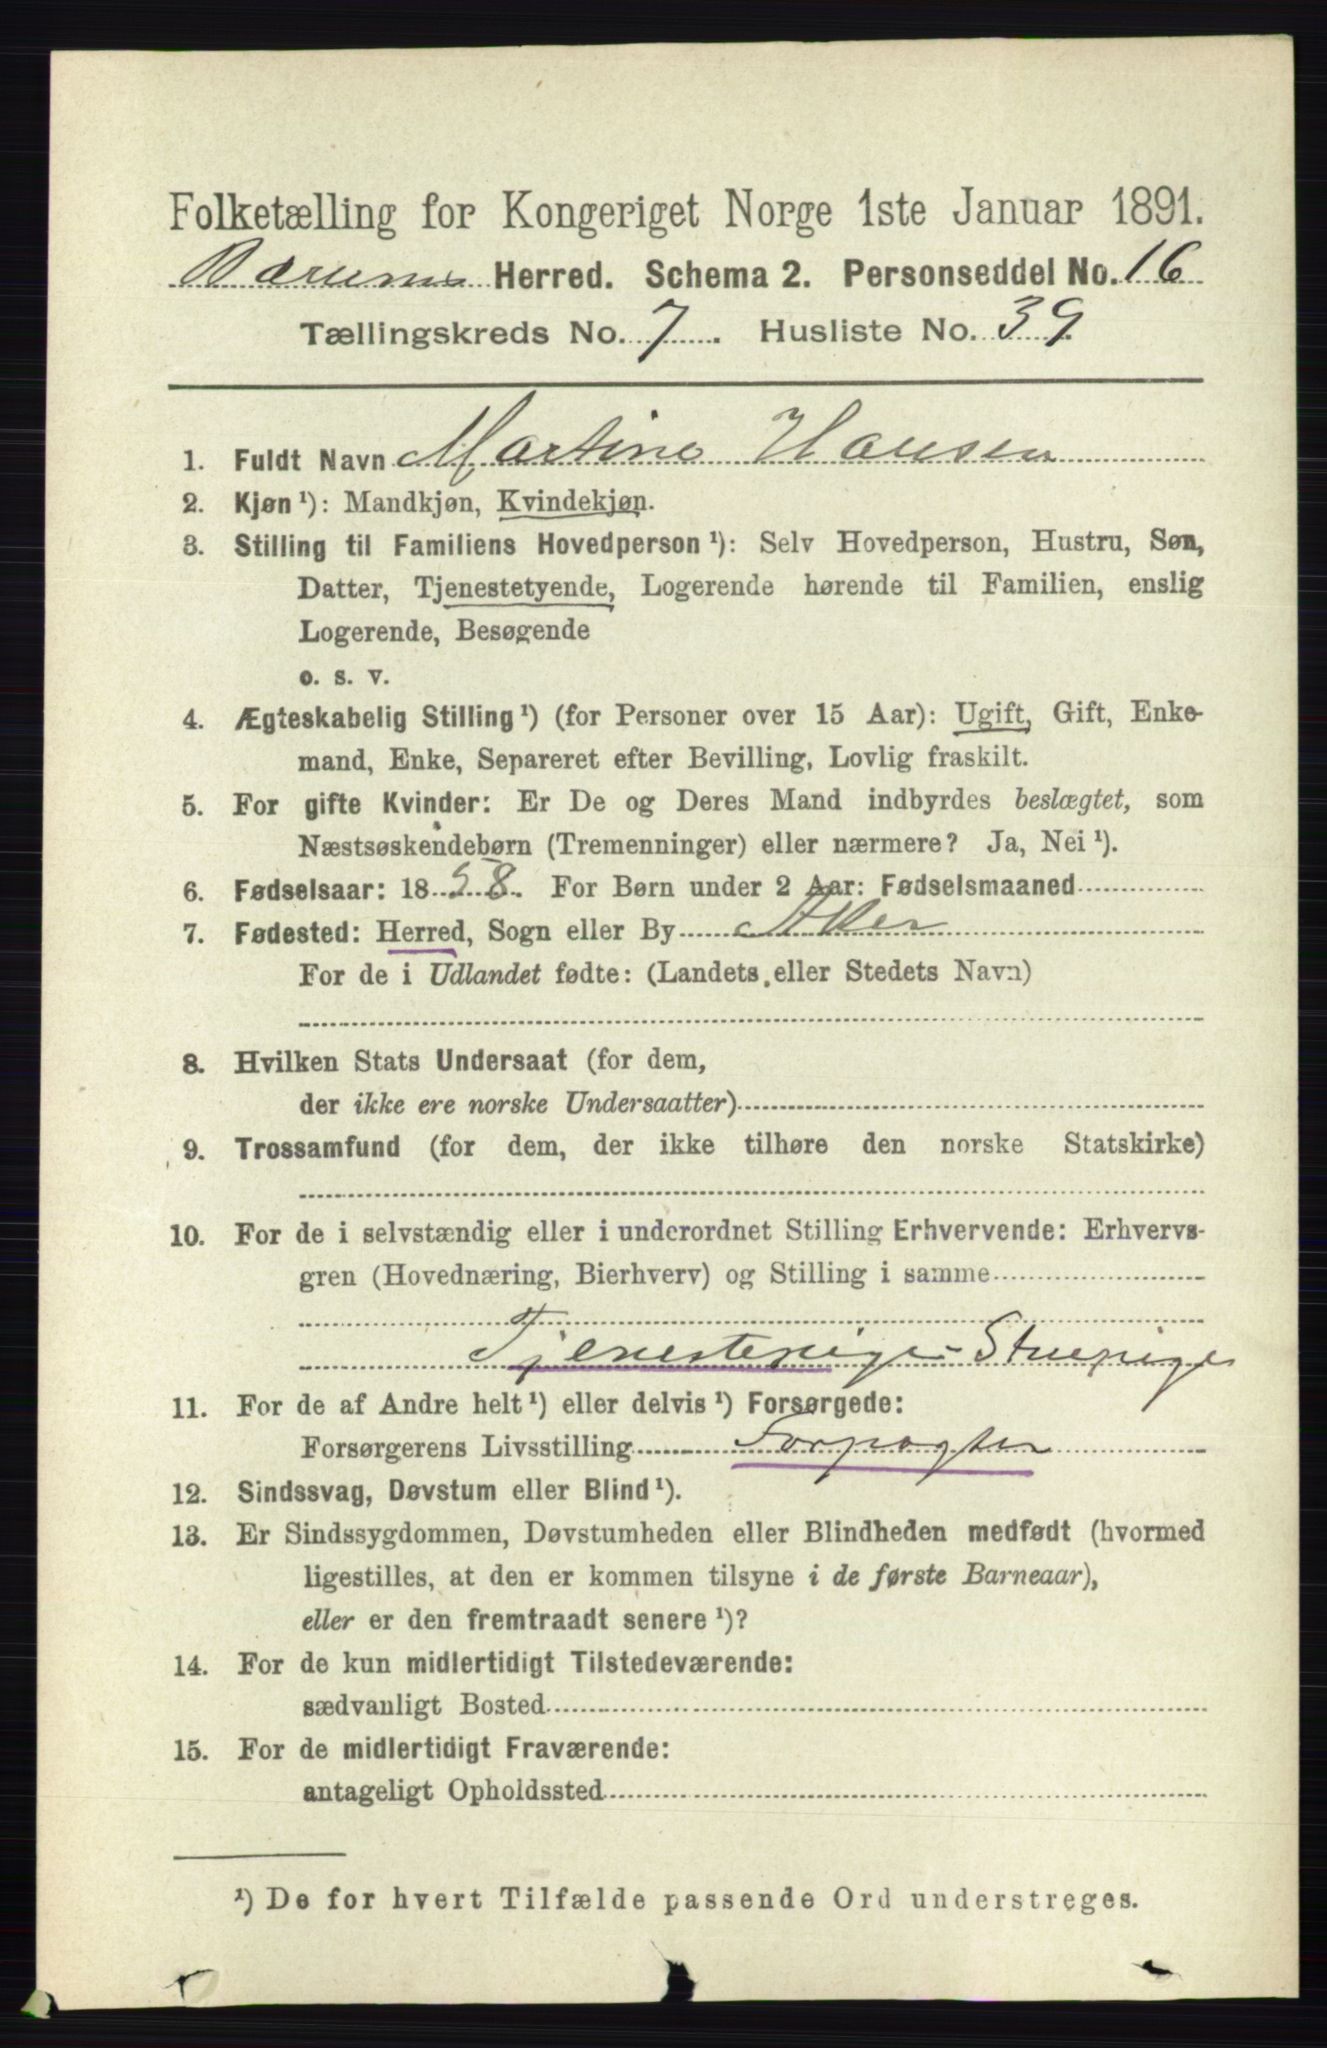 Folketælling for Kongeriget Norge 1ste Januar 1891.
Bærums Herred. Schema 2. Personseddel No. 16
Tællingskreds No. 7. Husliste No. 39
1. Fuldt Navn Martine Hansen
2. Kjøn¹): Mandkjøn, Kvindekjøn.
3. Stilling til Familiens Hovedperson¹): Selv Hovedperson, Hustru, Søn,
Datter, Tjenestetyende, Logerende hørende til Familien, enslig
Logerende, Besøgende
o. s. v.
4. Ægteskabelig Stilling¹) (for Personer over 15 Aar): Ugift, Gift, Enke-
mand, Enke, Separeret efter Bevilling, Lovlig fraskilt.
5. For gifte Kvinder: Er De og Deres Mand indbyrdes beslægtet, som
Næstsøskendebørn (Tremenninger) eller nærmere? Ja, Nei¹).
6. Fødselsaar: 1858. For Børn under 2 Aar: Fødselsmaaned
7. Fødested: Herred, Sogn eller By Aker
For de i Udlandet fødte: (Landets eller Stedets Navn)
8. Hvilken Stats Undersaat (for dem,
der ikke ere norske Undersaatter)
9. Trossamfund (for dem, der ikke tilhøre den norske Statskirke)
10. For de i selvstændig eller i underordnet Stilling Erhvervende: Erhvervs-
gren (Hovednæring, Bierhverv) og Stilling i samme
Tjenestepige - Stuepige
11. For de af Andre helt¹) eller delvis¹) Forsørgede:
Forsørgerens Livsstilling Forpagter
12. Sindssvag, Døvstum eller Blind¹).
13. Er Sindssygdommen, Døvstumheden eller Blindheden medfødt (hvormed
ligestilles, at den er kommen tilsyne i de første Barneaar),
eller er den fremtraadt senere¹)?
14. For de kun midlertidigt Tilstedeværende:
sædvanligt Bosted
15. For de midlertidigt Fraværende:
antageligt Opholdssted
¹) De for hvert Tilfælde passende Ord understreges.